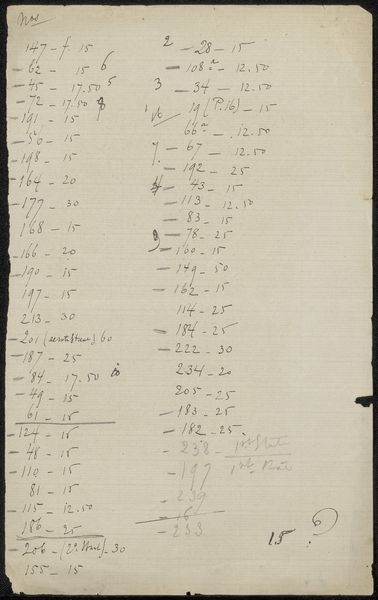 Nos
147 - f. 15
- 62 - 15 6
- 45 - 17.50 5
- 72 - 17.50 8
- 191 - 15
- 50 - 15
- 198 - 15
- 164 - 20
- 177 - 30
168 - 15
- 166 - 20
- 190 - 15
197 - 15
213 - 30
- 201 60
- 187 - 25
- 84 - 17.50 10
- 49 - 15
61 - 15
- 124 - 15
- 48 - 15
- 110 - 15
81 - 15
- 115 - 12.50
186 - 25
- 206 - (2e Staat) - 30
155 - 15
2 - 28 - 15
- 108a - 12.50
3 - 34 - 12.50
19 (P.16) - 15
66a - 12.50
7 - 67 - 12.50
- 192 - 25
4 - 43 - 15
- 113 - 12.50
- 83 - 15
9 - 78 - 25
- 160 - 15
- 149 - 50
- 162 - 15
114 - 25
- 184 - 25
- 222 - 30
234 - 20
205 - 25
- 183 - 25
- 182 - 25
- 238 -
- 197
- 239
- 16
- 233
15 ?